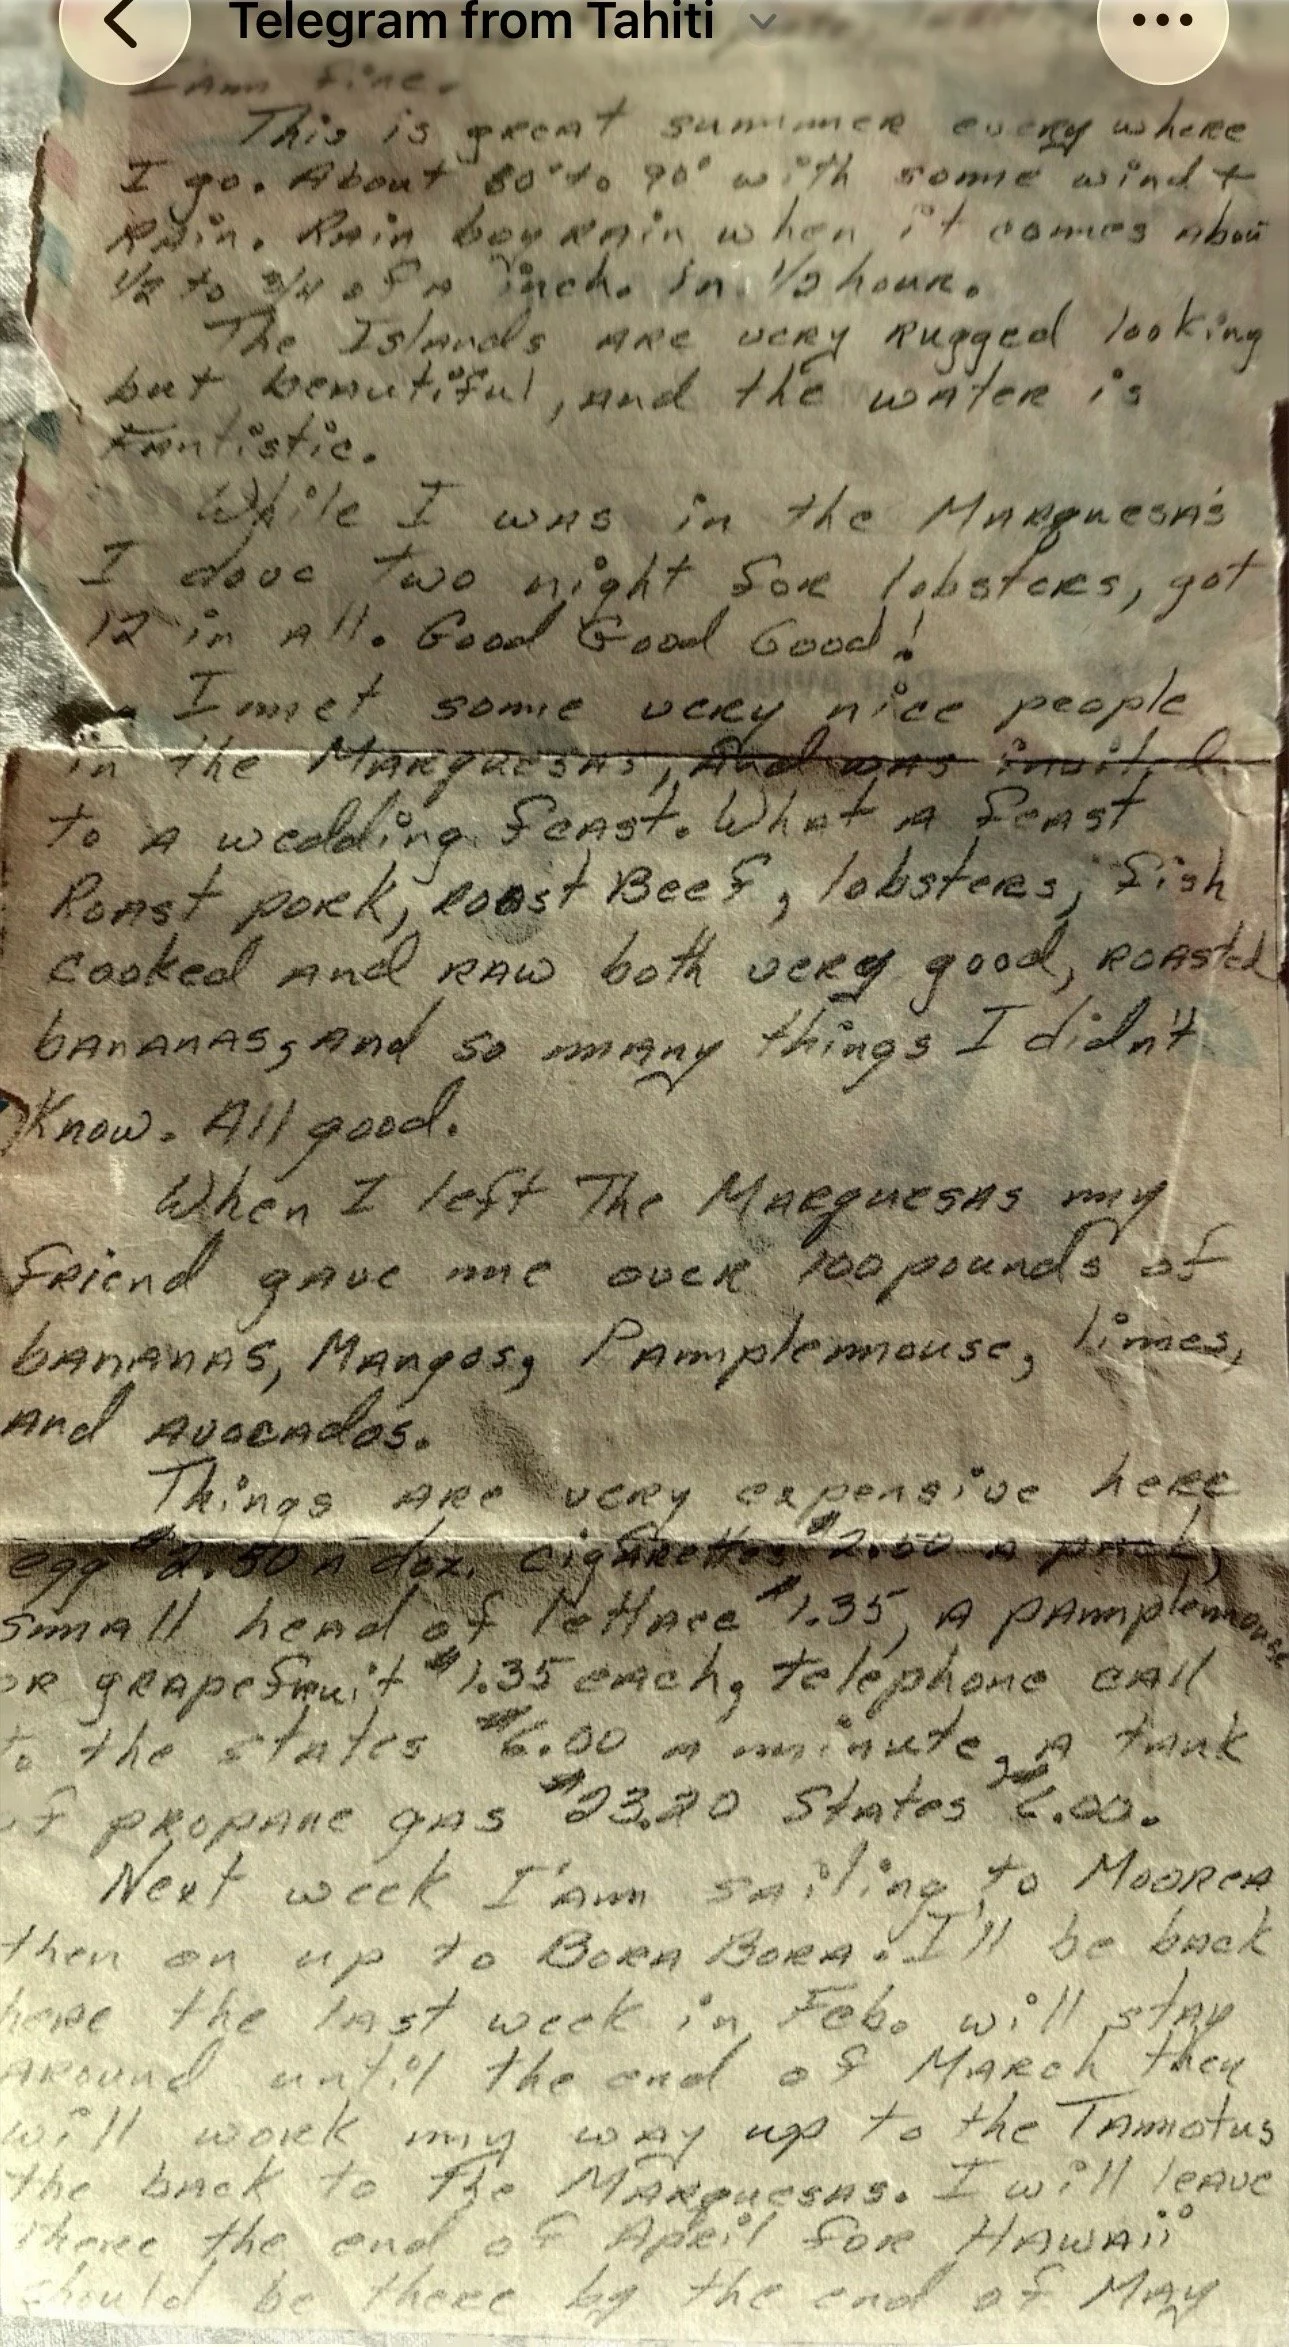 Telegram from Tahiti
I'am fine.
This is great summer every where
I go. About 80° to 90° with some wind +
Rain. Rain boy rain when it comes abou
1/2 to 3/4 of a inch. in. 1/2 hour.
The Islands are very rugged looking
but beautiful, and the water is
Fantistic.
While I was in the Marquesas's
I dove two night for lobsters, got
12 in all. Good Good Good!
I met some very nice people
in the Marquesas, and was invited
to a wedding feast. What a feast
Roast pork, roast Beef, lobsters, fish
cooked and raw both very good, roasted
bananas, and so many things I didn't
Know. All good.
When I left The Marquesas my
friend gave me over 100 pounds of
bananas, Mangos, Pamplemouse, limes,
and avocados.
Things are very expensive here
egg $2.50 a doz. cigarettes $2.50 a pack,
small head of lettace $1.35, a pamplemouse
or grapefruit $1.35 each, telephone call
to the states $6.00 a minute, a tank
of propane gas $23.20 States $6.00.
Next week I'am sailing to Moorea
then on up to Bora Bora. I'll be back
here the last week in Feb. will stay
around until the end of March they
will work my way up to the Tamotus
the back to the Marquesas. I will leave
there the end of April for Hawaii
should be there by the end of May